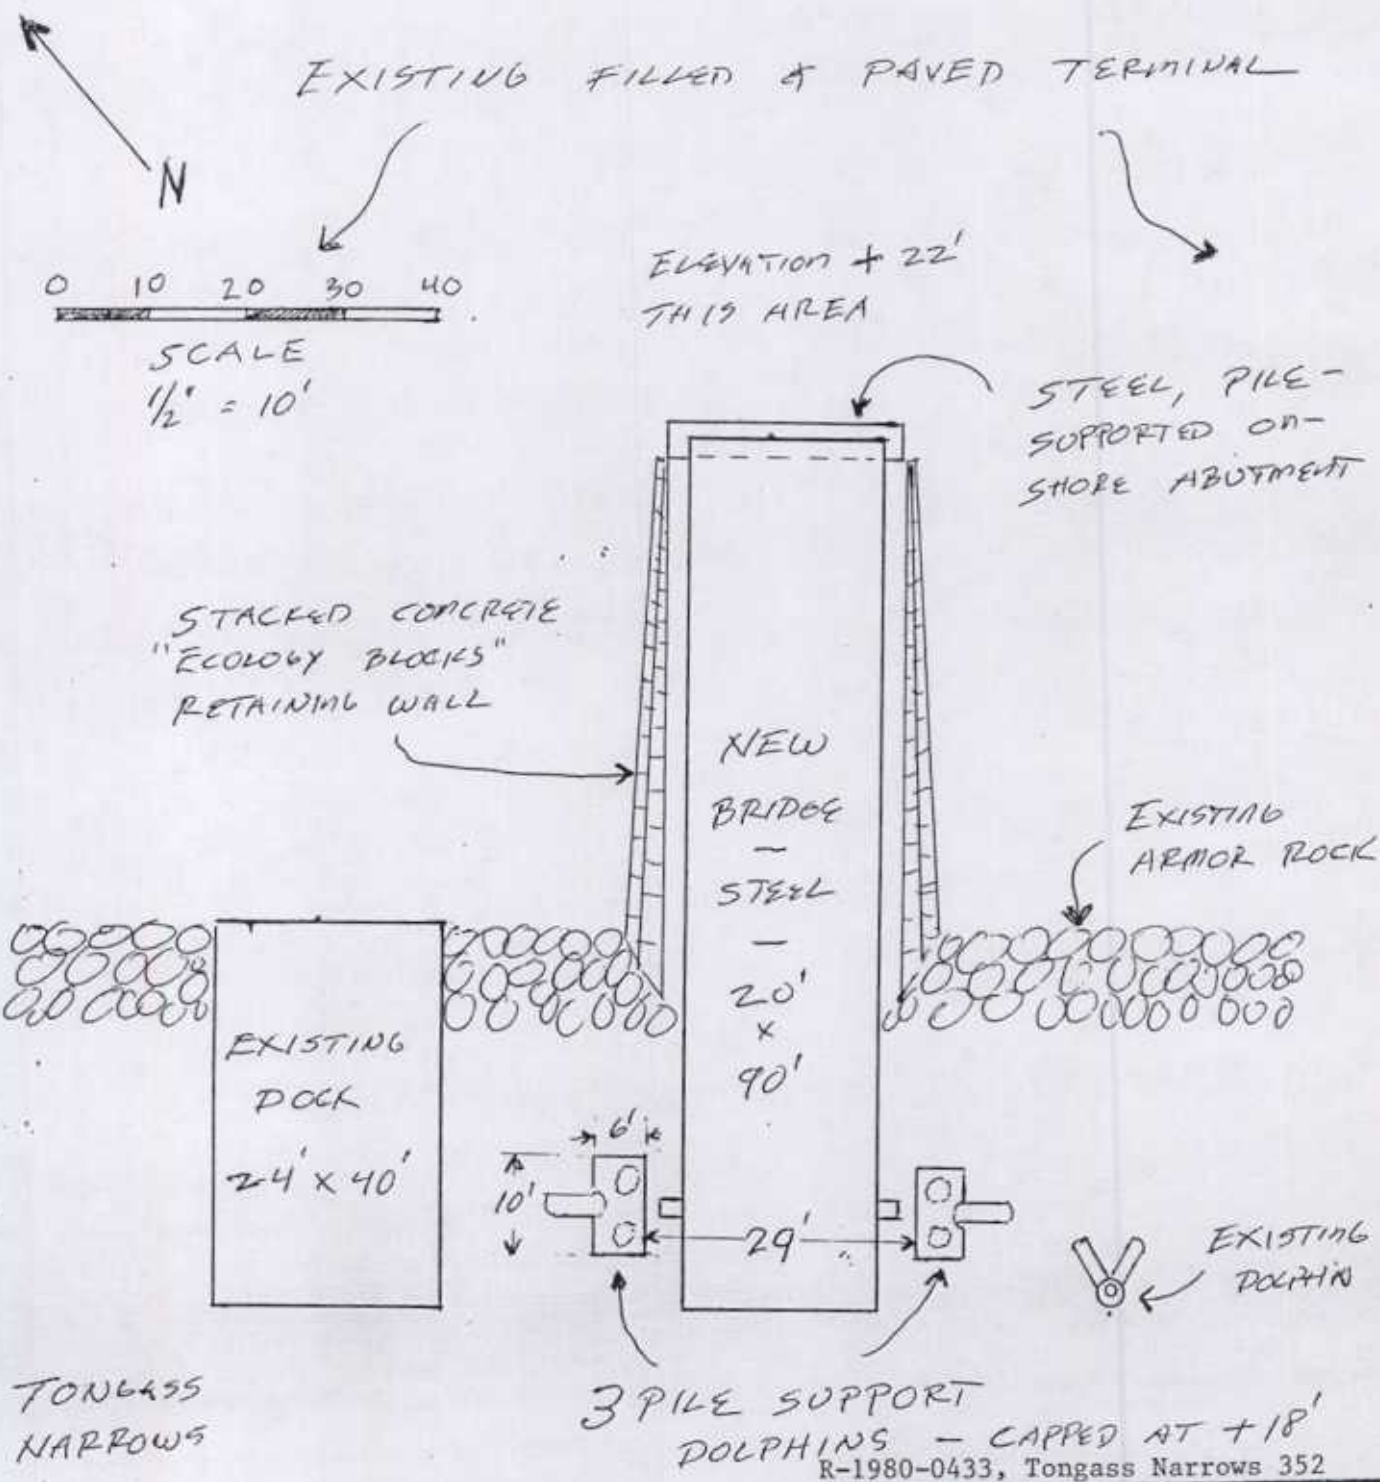 EXISTING FILLED & PAVED TERMINAL
N
0 10 20 30 40
SCALE
1/2" = 10'
ELEVATION + 22'
THIS AREA
STEEL, PILE-
SUPPORTED ON-
SHORE ABUTMENT
STACKED CONCRETE
"ECOLOGY BLOCKS"
RETAINING WALL
NEW
BRIDGE
-
STEEL
-
20'
x
90'
EXISTING
ARMOR ROCK
EXISTING
DOCK
24' x 40'
6'
10'
29'
EXISTING
DOLPHIN
TONGASS
NARROWS
3 PILE SUPPORT
DOLPHINS - CAPPED AT +18'
R-1980-0433, Tongass Narrows 352